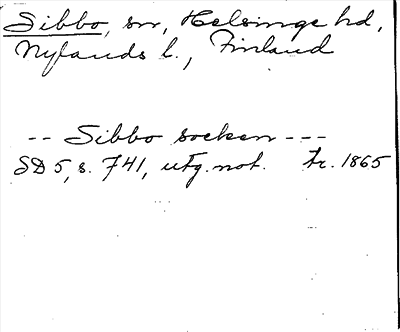 Sibbo, sn, Helsinge hd,
Nylands l., Finland
-- Sibbo socken ---
SD 5, s. 741, utg. not. tr. 1865